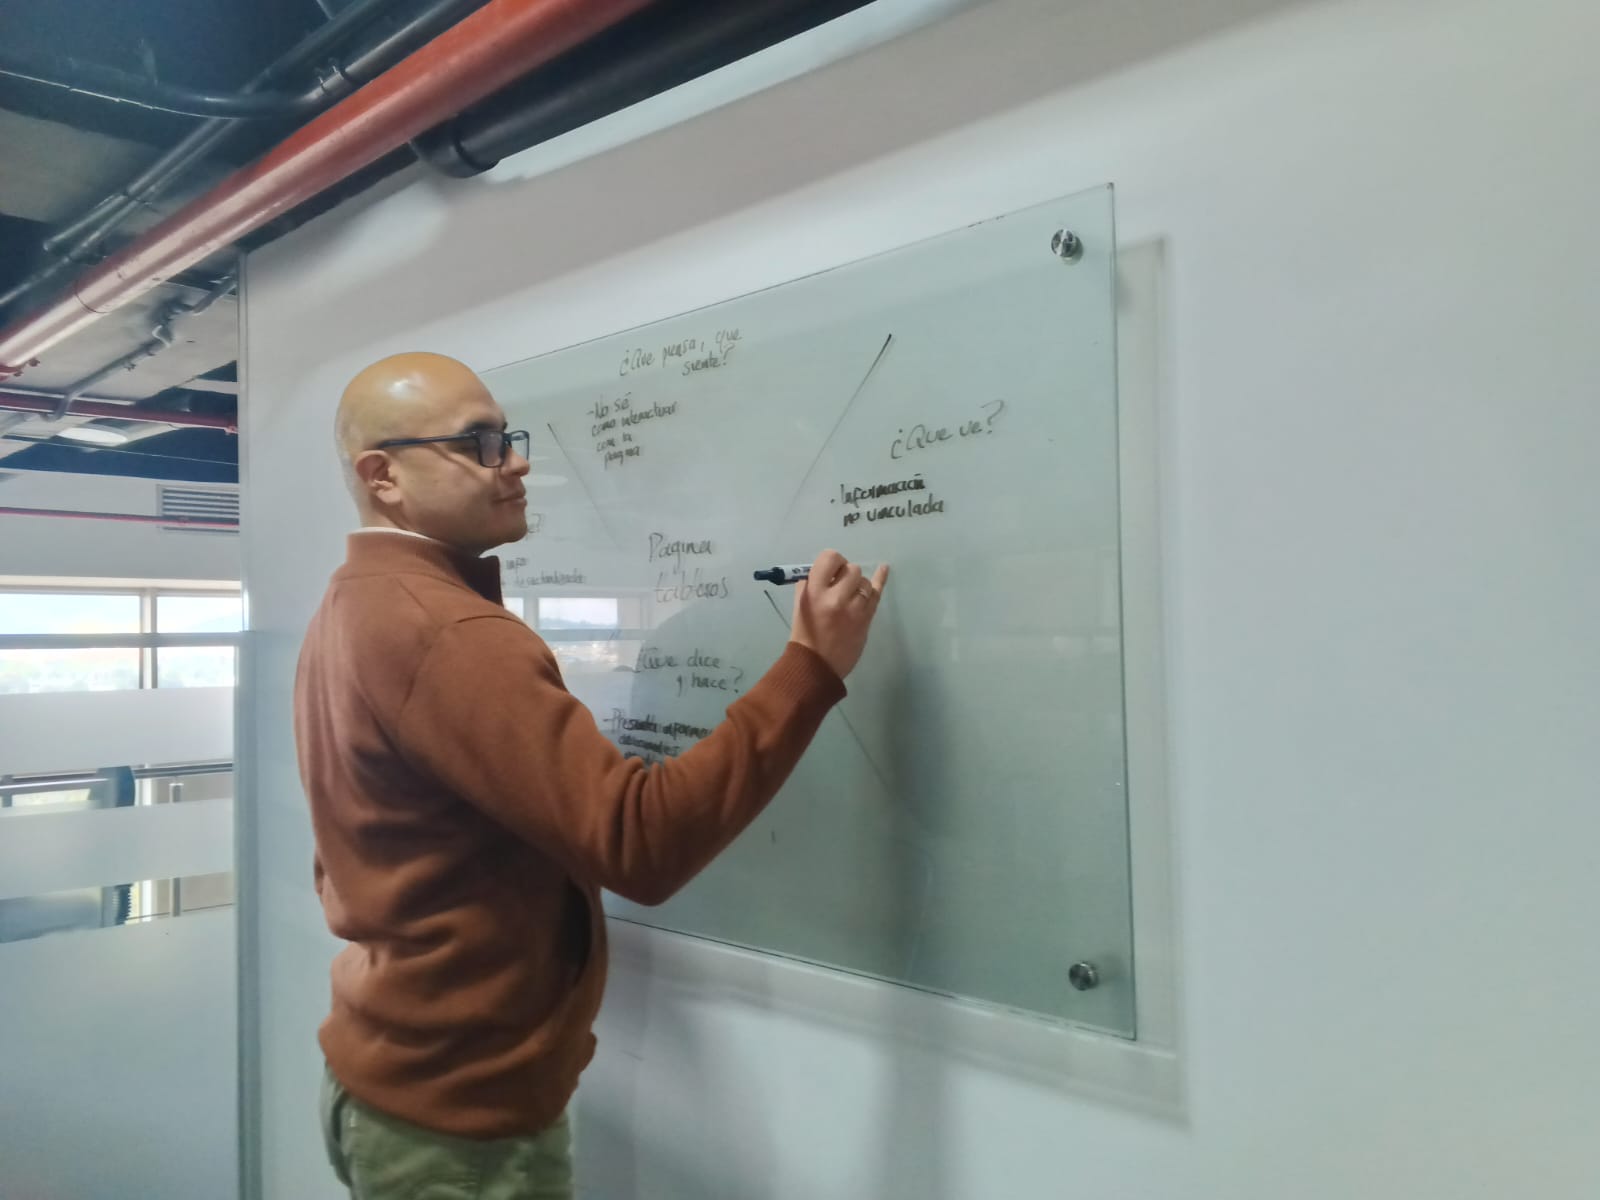 ¿Que piensa, que
siente?
-No sé
como interactuar
con la
pagina
¿Que ve?
· Información
no vinculada
e?
info
desactualizada
Pagina
tableros
¿Que dice
y hace?
-Presenta informa